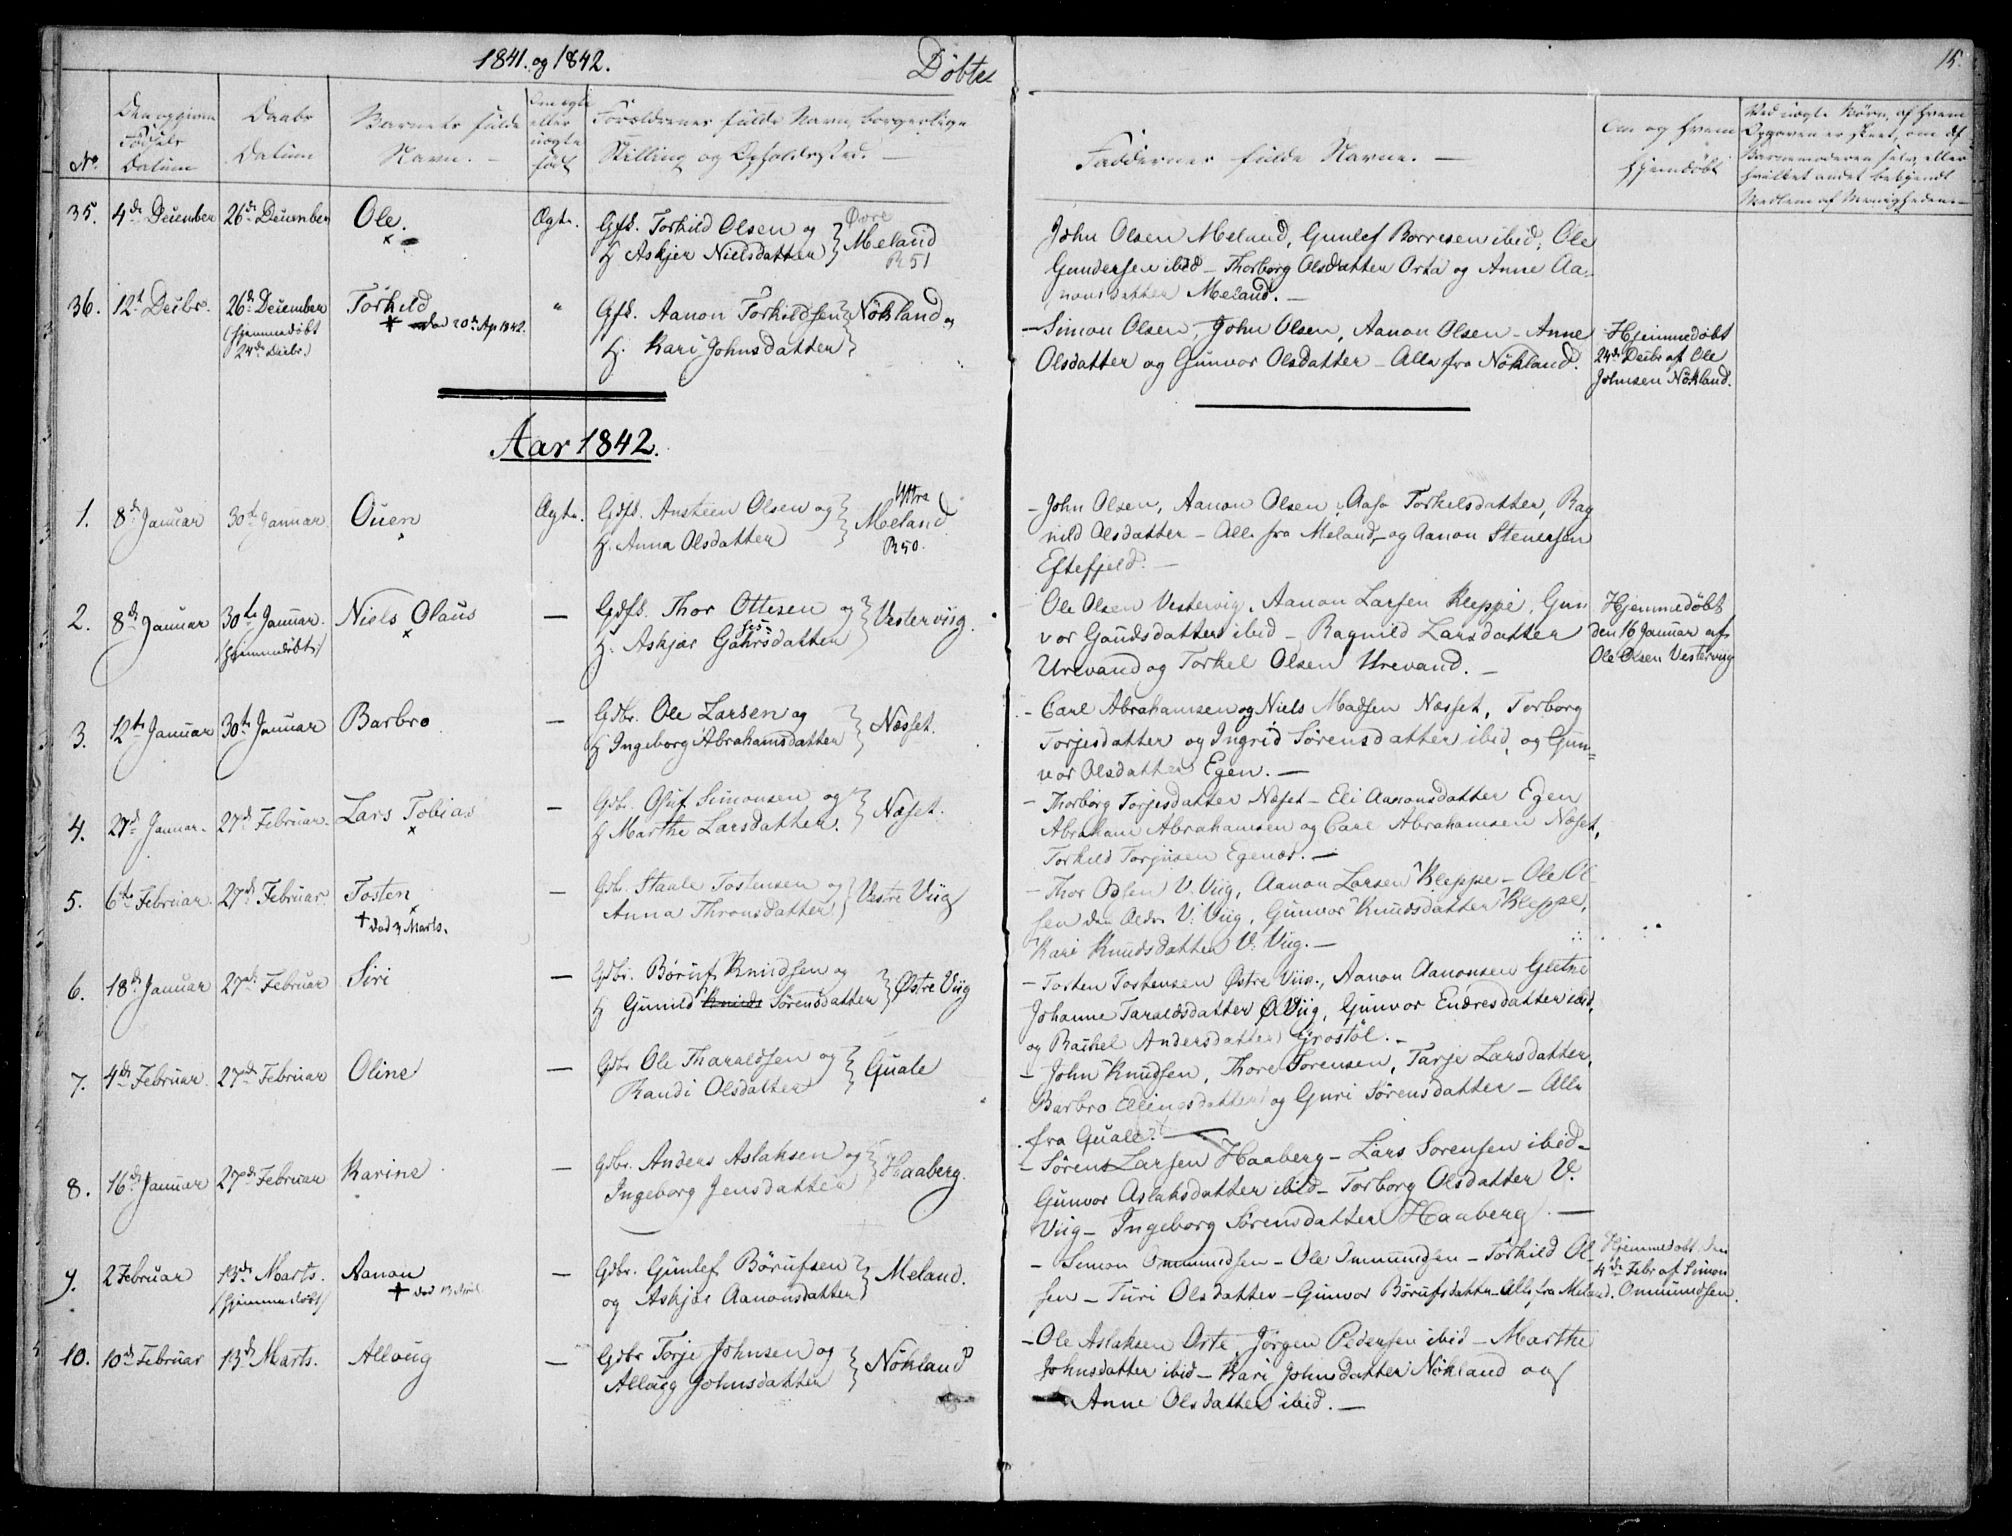 1841. og 1842.
Döbte
15.
No.
Den opgivne
Fødsels
Datum
Daabs
Datum
Barnets fulde
Navn. -
Om egte
eller
uegte
født
Forældrenes fulde Navn, borgerlige
Stilling og Opholdssted. —
Faddernes fulde Navne. —
Om og hvem
hjemdöbt
Ved uegte Børn, af hvem
Opgaven er skeet, om af
Barnemoderen selv, eller
hvilket andet bekjendt
Medlem af Menigheden. -
35. 4de December 26de December Ole. Ægte. Gfs. Torkild Olsen og
H Askjer Nielsdatter } Øvre Meland
R 51
John Olsen Meland, Gunlef Borresen ibid, Ole
Gundersen ibid - Thorborg Olsdatter Orta og Anne Aa-
nonsdatter Meland. -
36. 12te Decbr. 26de December Torkild " Gfs. Aanon Torkildsen } Nökland og
(hjemmedöbt
24de Decbr.)
död 20de Ap 1842.
H. Kari Johnsdatter
- Simon Olsen, John Olsen, Aanon Olsen - Anne
Olsdatter og Gunvor Olsdatter - Alle fra Nökland.
Hjemmedöbt
24de Decbr af Ole
Johnsen Nökland.
Aar 1842.
1. 8de Januar 30te Januar. Ouen Ægte. Gdfs. Ansteen Olsen og
H. Anna Olsdatter } Yttre Meland
R 50.
- John Olsen, Aanon Olsen, Aase Torkelsdatter, Rag
nild Olsdatter - Alle fra Meland - og Aanon Stenersen
Eftefjeld. -
2. 8de Januar 30te Januar. Niels Olaus — Gdfs. Thor Ottesen og
(hjemmedöbt)
H. Askjær Gahrsdatter } Vesterviig.
Ole Olsen Vestervig, Aanon Larsen Kleppe, Gun
vor Gaudsdatter ibid - Ragnild Larsdatter
Urevand og Torkel Olsen Urevand. -
Hjemmedöbt
den 16 Januar af
Ole Olsen Vesterviig
3. 12te Januar 30te Januar Barbro — Gdbr. Ole Larsen og
H Ingeborg Abrahamsdatter } Næsset.
- Carl Abrahamsen og Niels Madsen Næsset, Torborg
Torjesdatter og Ingrid Sörensdatter ibid, og Gun-
vor Olsdatter Egen. —
4. 27de Januar. 27de Februar. Lars Tobias — Gdbr. Oluf Simonsen og
H Marthe Larsdatter. } Næset.
- Thorborg Torjesdatter Næset - Eli Aanonsdatter Egen
Abraham Abrahamsen og Carl Abrahamsen Næset,
Torkild Torjusen Egenes. —
5. 6te Februar. 27de Februar. Tosten — Gdbr. Staale Tostensen og
+ död 3 Marts.
Anna Thronsdatter } Vestre Viig
- Thor Olsen V. Viig, Aanon Larsen Kleppe - Ole Ol
sen den Ældre V. Viig, Gunvor Knudsdatter Kleppe,
Kari Knudsdatter V. Viig. —
6. 18de Januar 27de Februar Siri — Gdbr. Böruf Knudsen og
H Gunild Knuds Sörensdatter } Østre Viig
- Torsten Tostensen Østre Viig., Aanon Aanonsen Gletne
Johanne Taraldsdatter Ø Viig, Gunvor Endresdatter ibid,
og Rachel Andersdatter Grostöl. -
7. 4de Februar. 27de Februar Oline — Gdbr Ole Tharaldsen og
Randi Olsdatter } Quale
- John Knudsen, Thore Sorensen, Tarje Larsdatter,
Barbro Ellingsdatter og Guri Sörensdatter - Alle
fra Quale. —
8. 16de Januar 27de Februar Karine — Gdbr. Anders Aslaksen og
Ingeborg Jensdatter } Haaberg.
- Sören Larsen Haaberg - Lars Sorensen ibid -
Gunvor Aslaksdatter ibid - Torborg Olsdatter V.
Viig - Ingeborg Sörensdatter Haaberg. —
9. 2 Februar 13de Marts. Aanon — Gdbr. Gunlef Börufsen
(hjemmedöbt)
+ död 13 April
og Askjær Aanonsdatter } Meland.
- Simon Ommundsen - Ole Ommundsen - Torkild Ol-
sen - Turi Olsdatter - Gunvor Börufsdatter - Alle fra Meland.
Hjemmedöbt den
4de Febr af Simon
Omuundsen.
10. 10de Februar 13de Marts. Alloug — Gdbr Torje Johnsen og
Alloug Johnsdatter } Nökland
- Ole Aslaksen Orte, Jörgen Pedersen ibid - Marthe
Johnsdatter ibid - Kari Johnsdatter Nökland og
Anne Olsdatter ibid. —